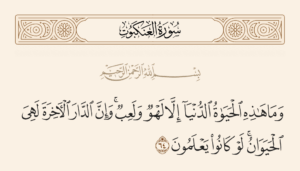 سُورَةُ العَنكَبُوتِ
بِسْمِ ٱللَّهِ ٱلرَّحْمَٰنِ ٱلرَّحِيمِ
وَمَا هَٰذِهِ ٱلْحَيَوٰةُ ٱلدُّنْيَآ إِلَّا لَهْوٌ وَلَعِبٌ ۚ وَإِنَّ ٱلدَّارَ ٱلْءَاخِرَةَ لَهِىَ
ٱلْحَيَوَانُ ۚ لَوْ كَانُوا۟ يَعْلَمُونَ ٦٤